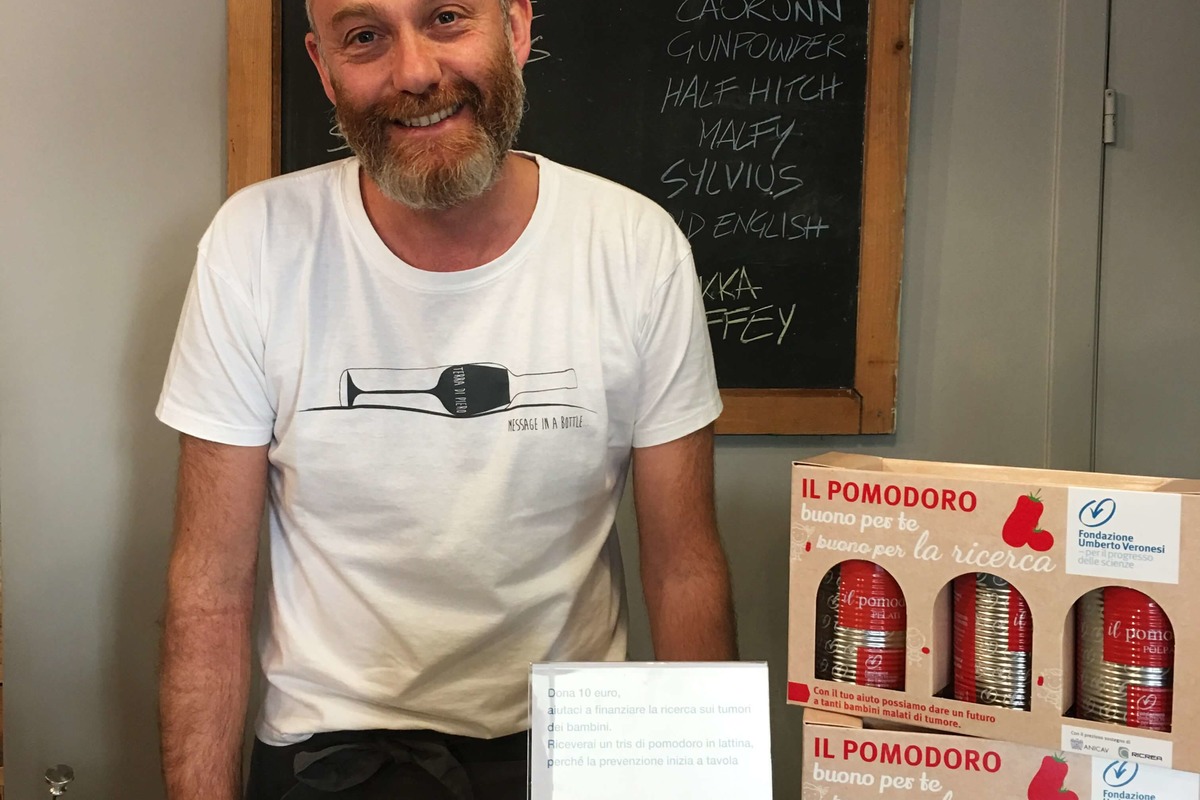 CAORUNN
GUNPOWDER
HALF HITCH
MALFY
SYLVIUS
ENGLISH
TERRA DI PIERO
MESSAGE IN A BOTTLE...
IL POMODORO
buono per te
buono per la ricerca
Fondazione
Umberto Veronesi
– per il progresso
delle scienze
il pomodo
PELATI
il
il pomo
POLPA
Con il tuo aiuto possiamo dare un futuro
a tanti bambini malati di tumore.
Con il prezioso sostegno di
ANICAV
RICREA
Dona 10 euro,
aiutaci a finanziare la ricerca sui tumori
dei bambini.
Riceverai un tris di pomodoro in lattina,
perché la prevenzione inizia a tavola
IL POMODORO
buono per te
Fondazione